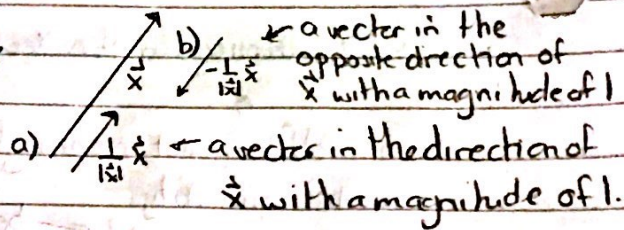 b) ← a vector in the
opposite direction of
-1/|x⃗| x⃗
x⃗ with a magnitude of 1
x⃗
a) 1/|x⃗| x⃗ ← a vector in the direction of
x⃗ with a magnitude of 1.